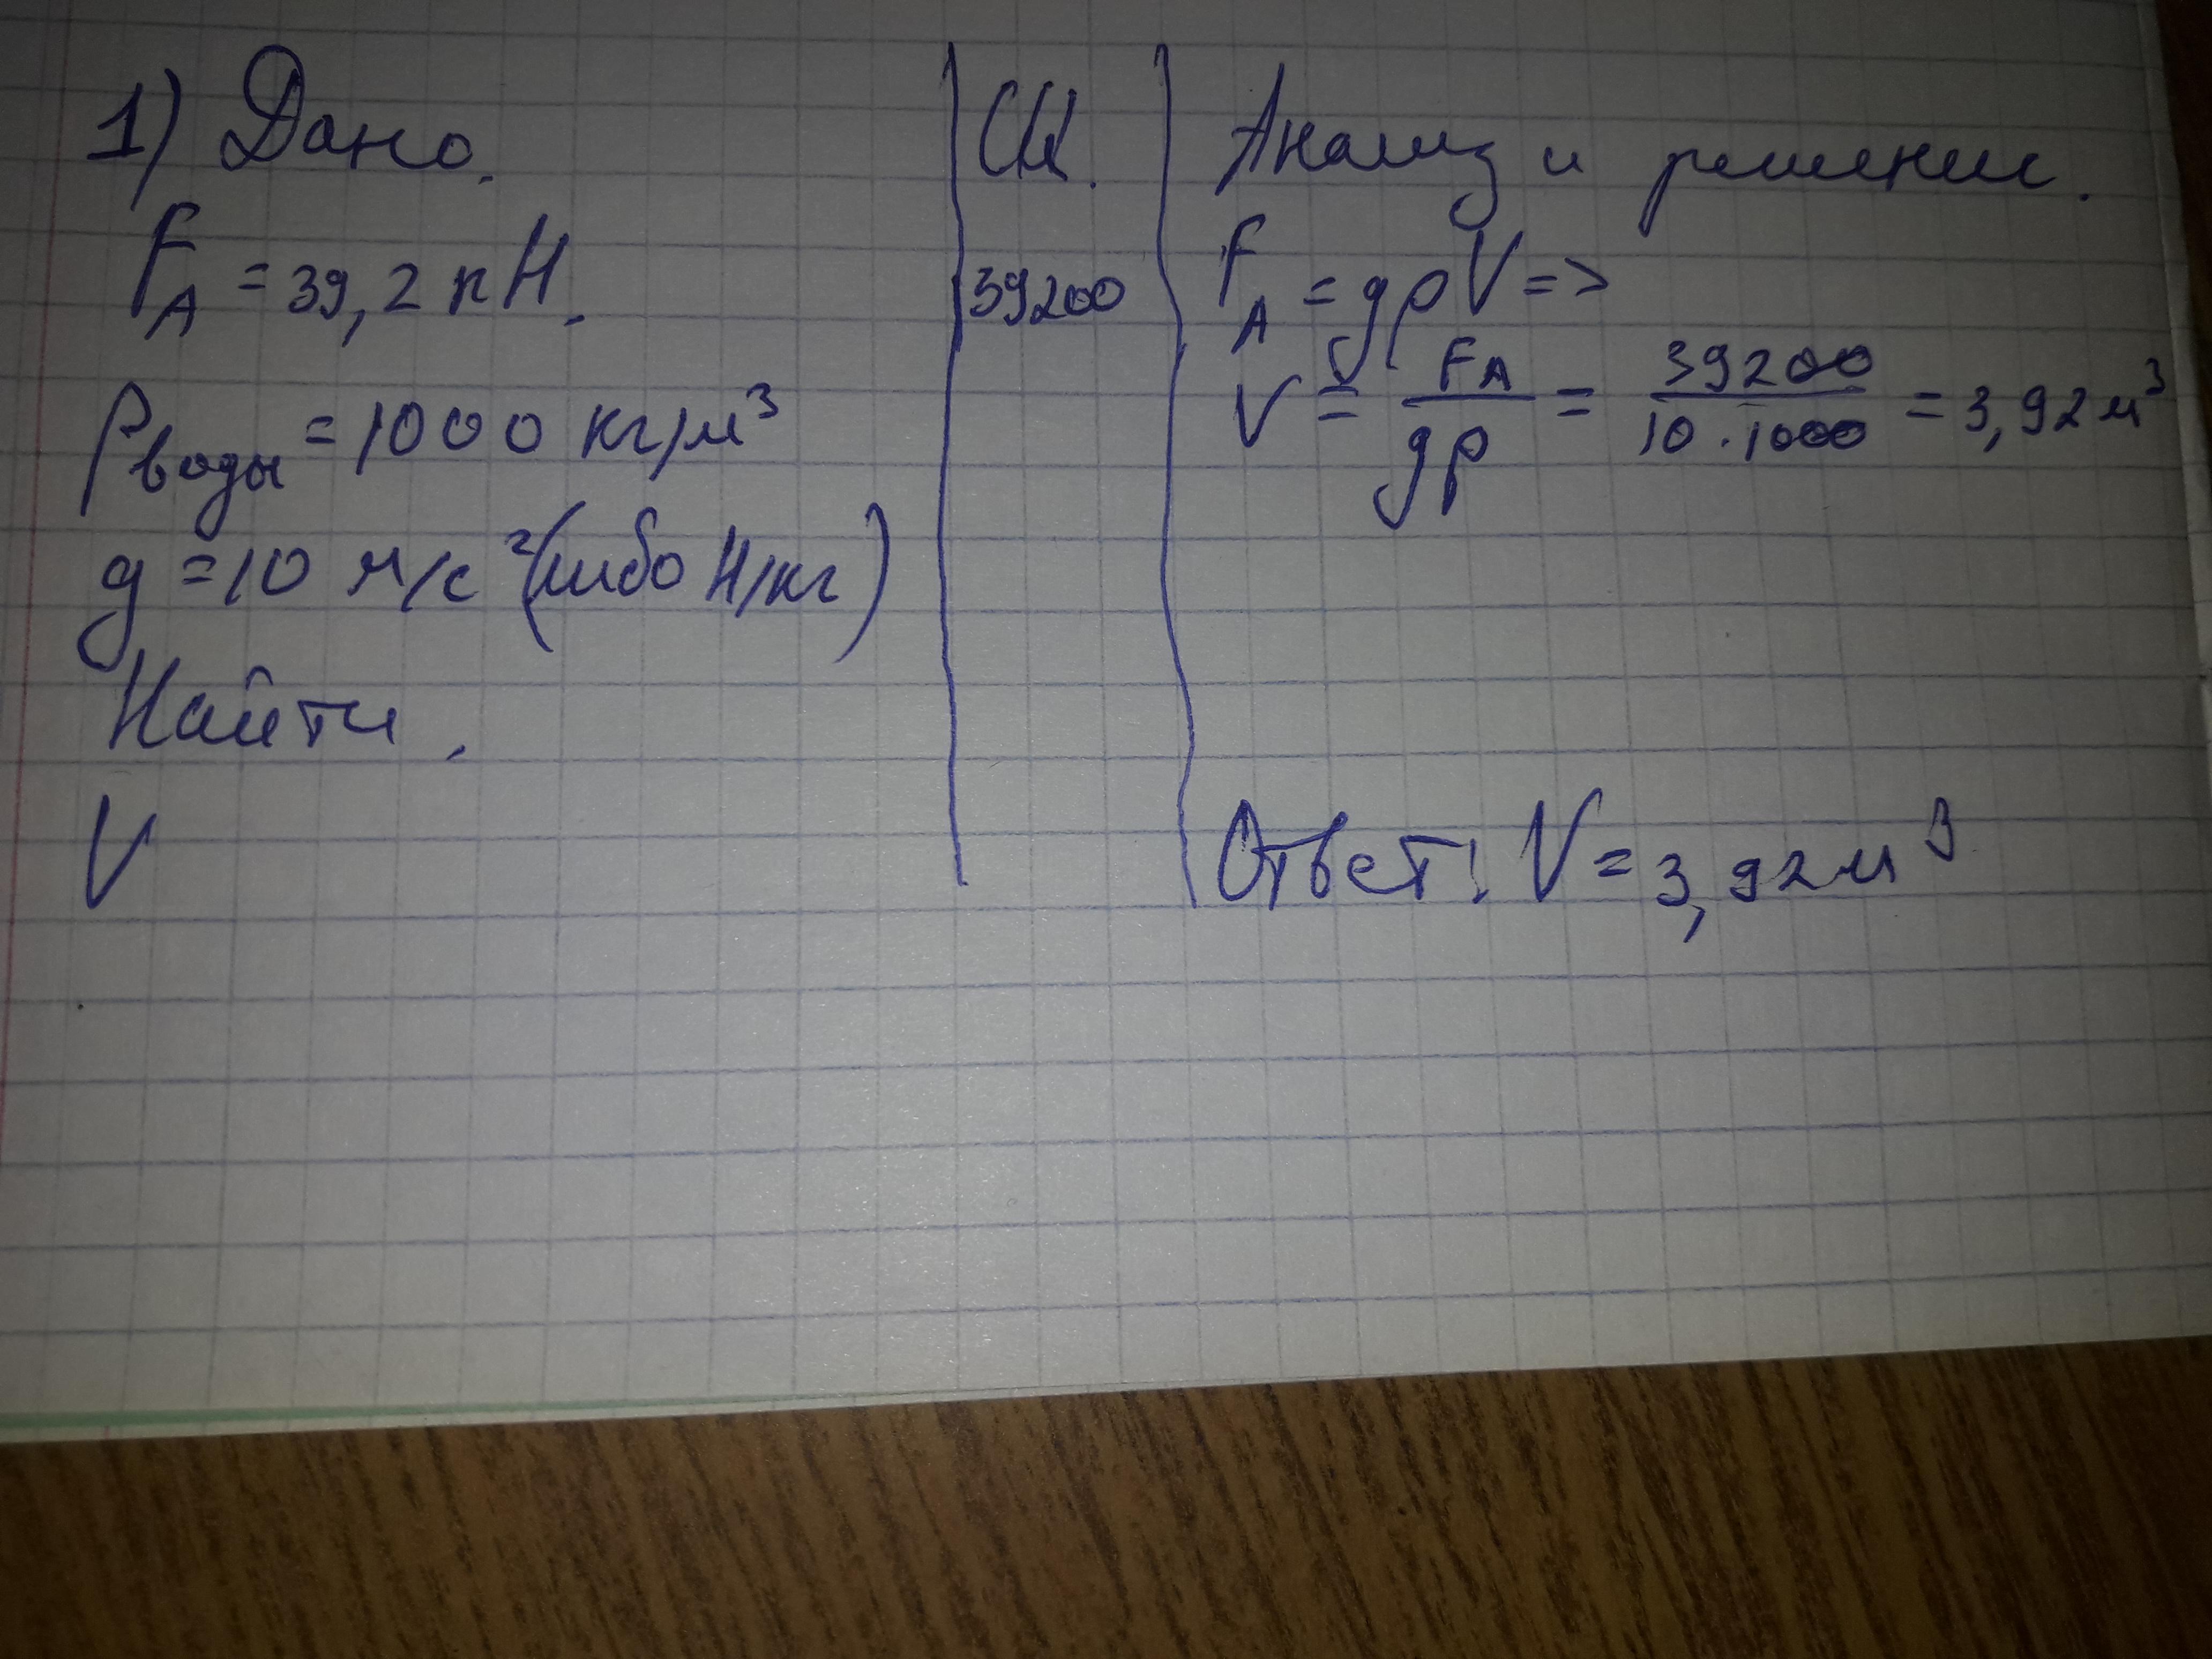 1) Дано.
F_A = 39,2 кН.
ρ_воды = 1000 кг/м³
g = 10 м/с² (либо Н/кг)
Найти.
V
СИ.
39200
Анализ и решение.
F_A = gρV =>
V = F_A/gρ = 39200/10·1000 = 3,92 м³
Ответ: V = 3,92 м³